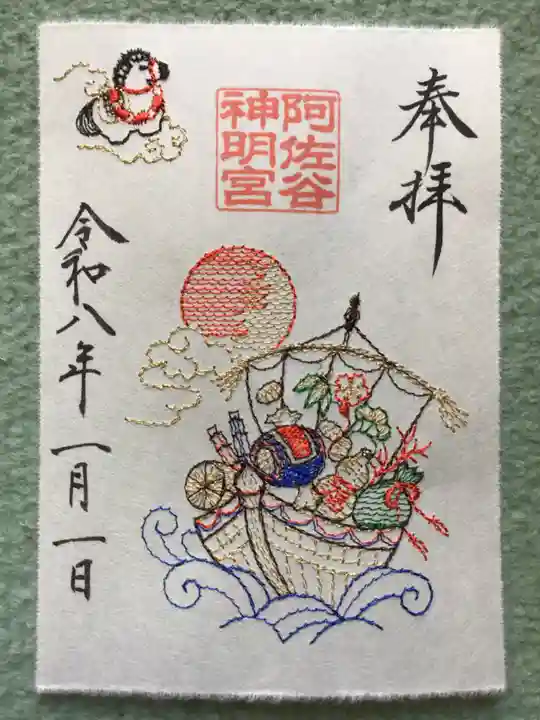 奉拝
阿佐谷
神明宮
令和八年一月一日